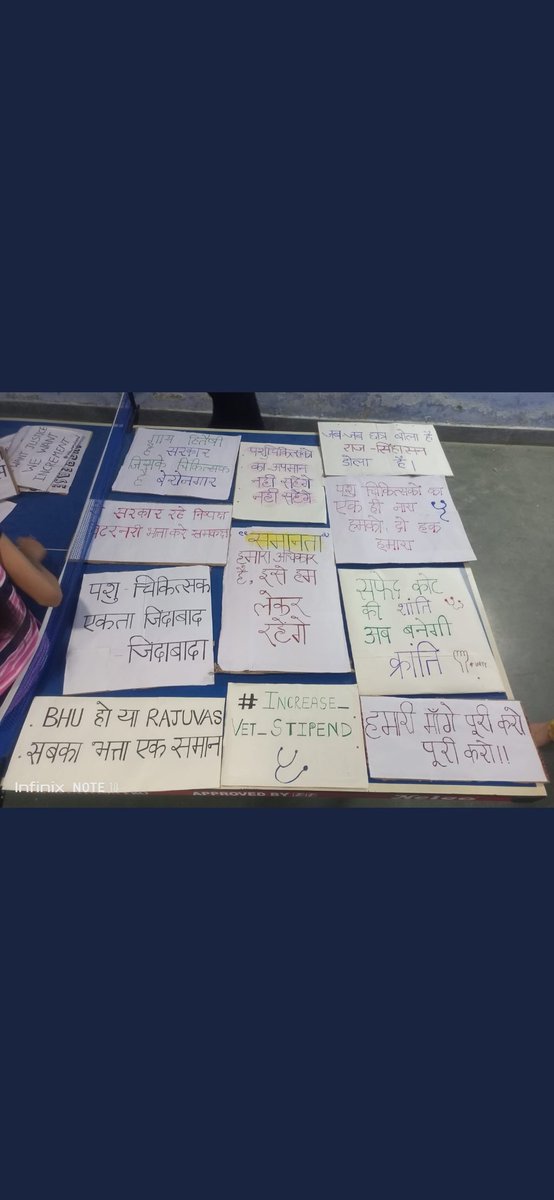 WANT JUSTICE
WE WANT
INCREMENT
सरकार
जिसके चिकित्सक
बेरोजगार
पशुचिकित्सकों
का अपमान
नहीं सहेंगे
नहीं सहेंगे
जब-जब छात्र बोला है
राज-सिंहासन
डोला है।
सरकार रहे निष्पक्ष
वेटरनरी भत्ता करे समकक्ष
"समानता"
हमारा अधिकार
है, इसे हम
लेकर
रहेंगे
पशु चिकित्सकों का
एक ही नारा
हमको दो हक
हमारा
पशु-चिकित्सक
एकता जिंदाबाद
जिंदाबाद।
सफेद कोट
की शांति
अब बनेगी
क्रांति
BHU हो या RAJUVAS
सबका भत्ता एक समान
# INCREASE_
VET_STIPEND
हमारी माँगे पूरी करो
पूरी करो!!
Infinix NOTE
APPROVED BY